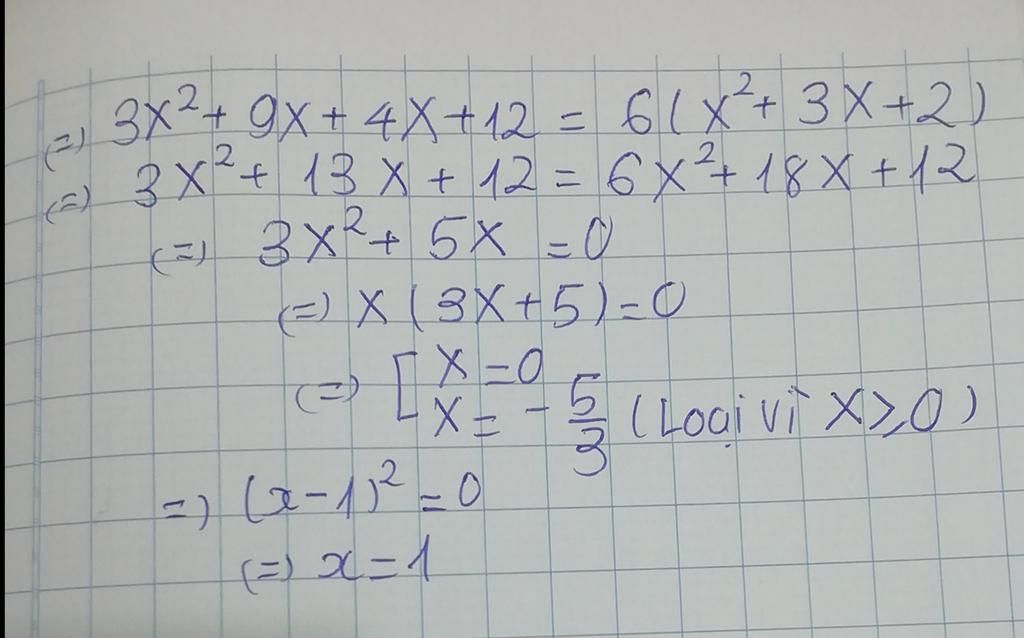 (=) 3X² + 9X + 4X + 12 = 6(X² + 3X + 2)
(=) 3X² + 13X + 12 = 6X² + 18X + 12
(=) 3X² + 5X = 0
(=) X(3X + 5) = 0
(=) [ X = 0
X = - 5/3 (Loại vì X ≥ 0)
=) (x - 1)² = 0
(=) x = 1